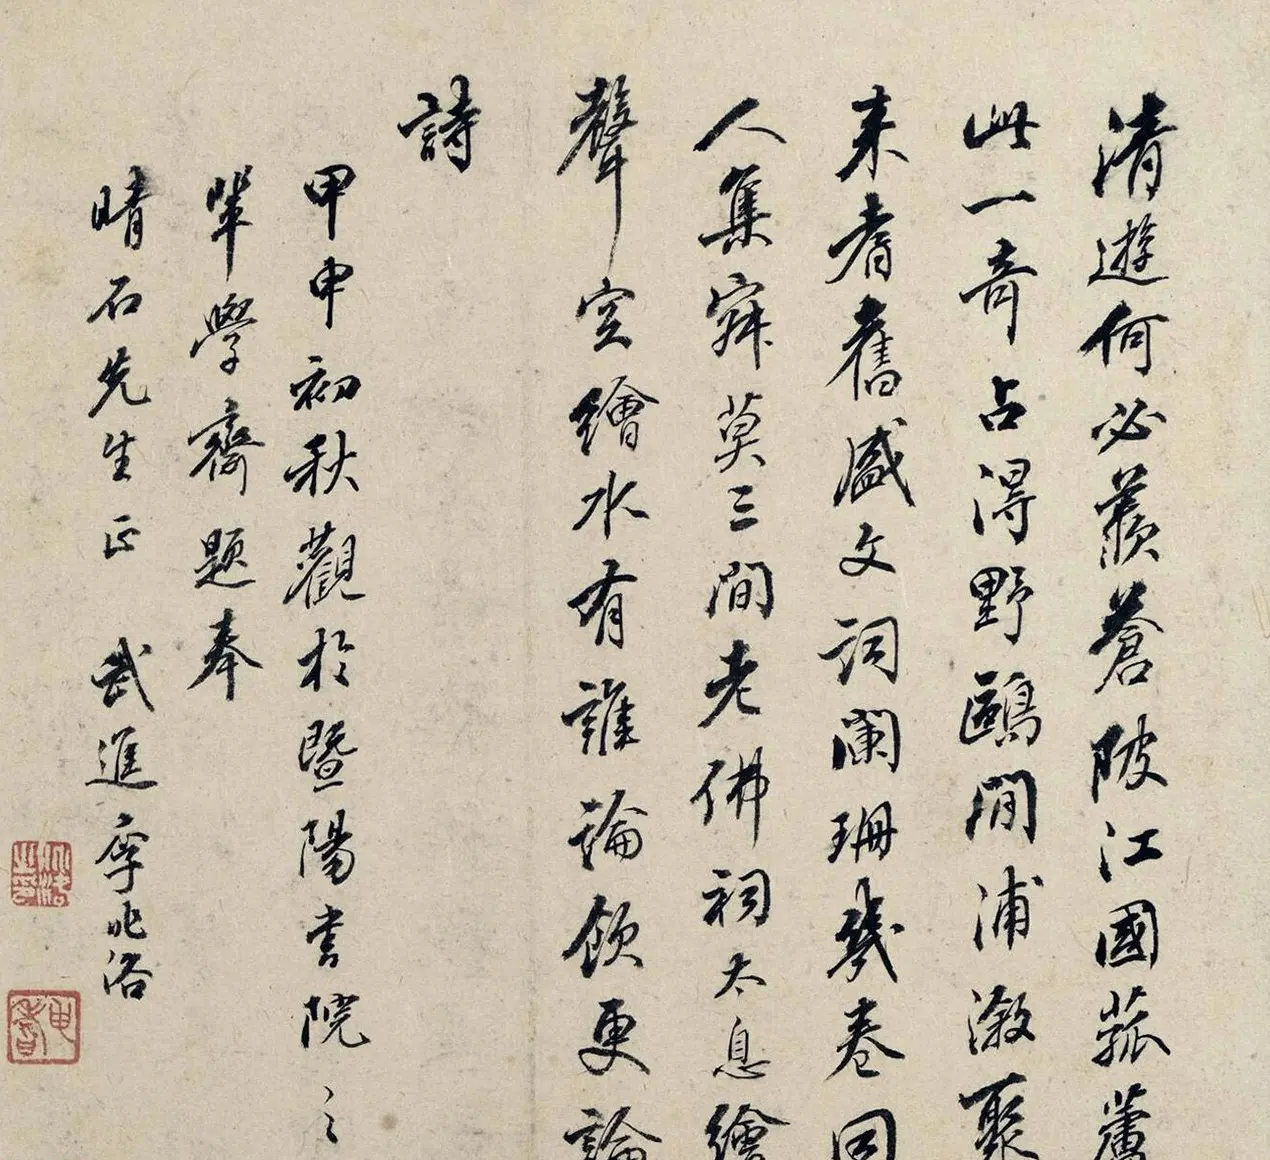 清遊何必羨蒼陂江國菰蘆
此一奇占得野鷗閒浦漵聚
來耆舊盛文詞闌珊幾卷同
人集寂莫三間老佛祠太息繪
聲空繪水有誰論飲更論
詩
甲申初秋觀於暨陽書院之
輩學齋題奉
晴石先生正 武進李兆洛